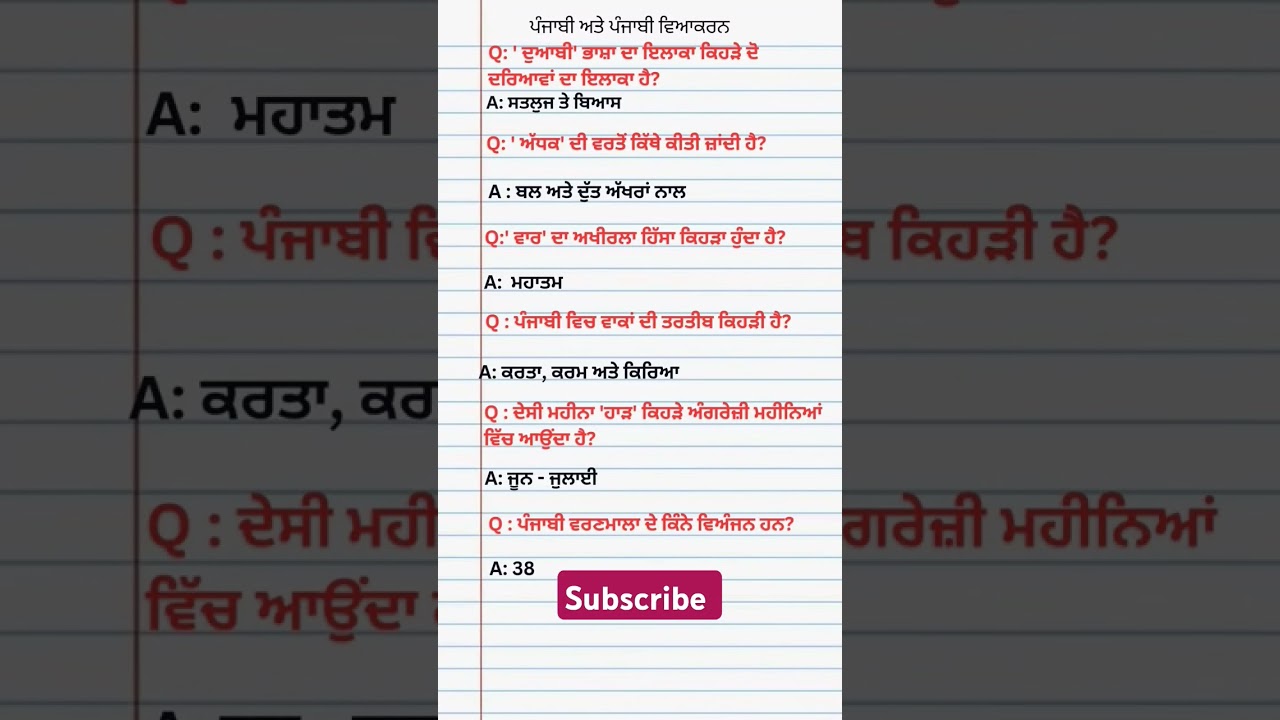 ਪੰਜਾਬੀ ਅਤੇ ਪੰਜਾਬੀ ਵਿਆਕਰਨ
Q: ' ਦੁਆਬੀ' ਭਾਸ਼ਾ ਦਾ ਇਲਾਕਾ ਕਿਹੜੇ ਦੋ
ਦਰਿਆਵਾਂ ਦਾ ਇਲਾਕਾ ਹੈ?
A: ਸਤਲੁਜ ਤੇ ਬਿਆਸ
Q: ' ਅੱਧਕ' ਦੀ ਵਰਤੋਂ ਕਿੱਥੇ ਕੀਤੀ ਜ਼ਾਂਦੀ ਹੈ?
A : ਬਲ ਅਤੇ ਦੁੱਤ ਅੱਖਰਾਂ ਨਾਲ
Q:' ਵਾਰ' ਦਾ ਅਖੀਰਲਾ ਹਿੱਸਾ ਕਿਹੜਾ ਹੁੰਦਾ ਹੈ?
A: ਮਹਾਤਮ
Q : ਪੰਜਾਬੀ ਵਿਚ ਵਾਕਾਂ ਦੀ ਤਰਤੀਬ ਕਿਹੜੀ ਹੈ?
A: ਕਰਤਾ, ਕਰਮ ਅਤੇ ਕਿਰਿਆ
Q : ਦੇਸੀ ਮਹੀਨਾ 'ਹਾੜ' ਕਿਹੜੇ ਅੰਗਰੇਜ਼ੀ ਮਹੀਨਿਆਂ
ਵਿੱਚ ਆਉਂਦਾ ਹੈ?
A: ਜੂਨ - ਜੁਲਾਈ
Q : ਪੰਜਾਬੀ ਵਰਣਮਾਲਾ ਦੇ ਕਿੰਨੇ ਵਿਅੰਜਨ ਹਨ?
A: 38
Subscribe
A: ਮਹਾਤਮ
Q : ਪੰਜਾਬੀ
ਕਿਹੜੀ ਹੈ?
A: ਕਰਤਾ,
Q : ਦੇਸੀ
ਮਹੀਨਿਆਂ
ਵਿੱਚ ਆਉਂਦਾ